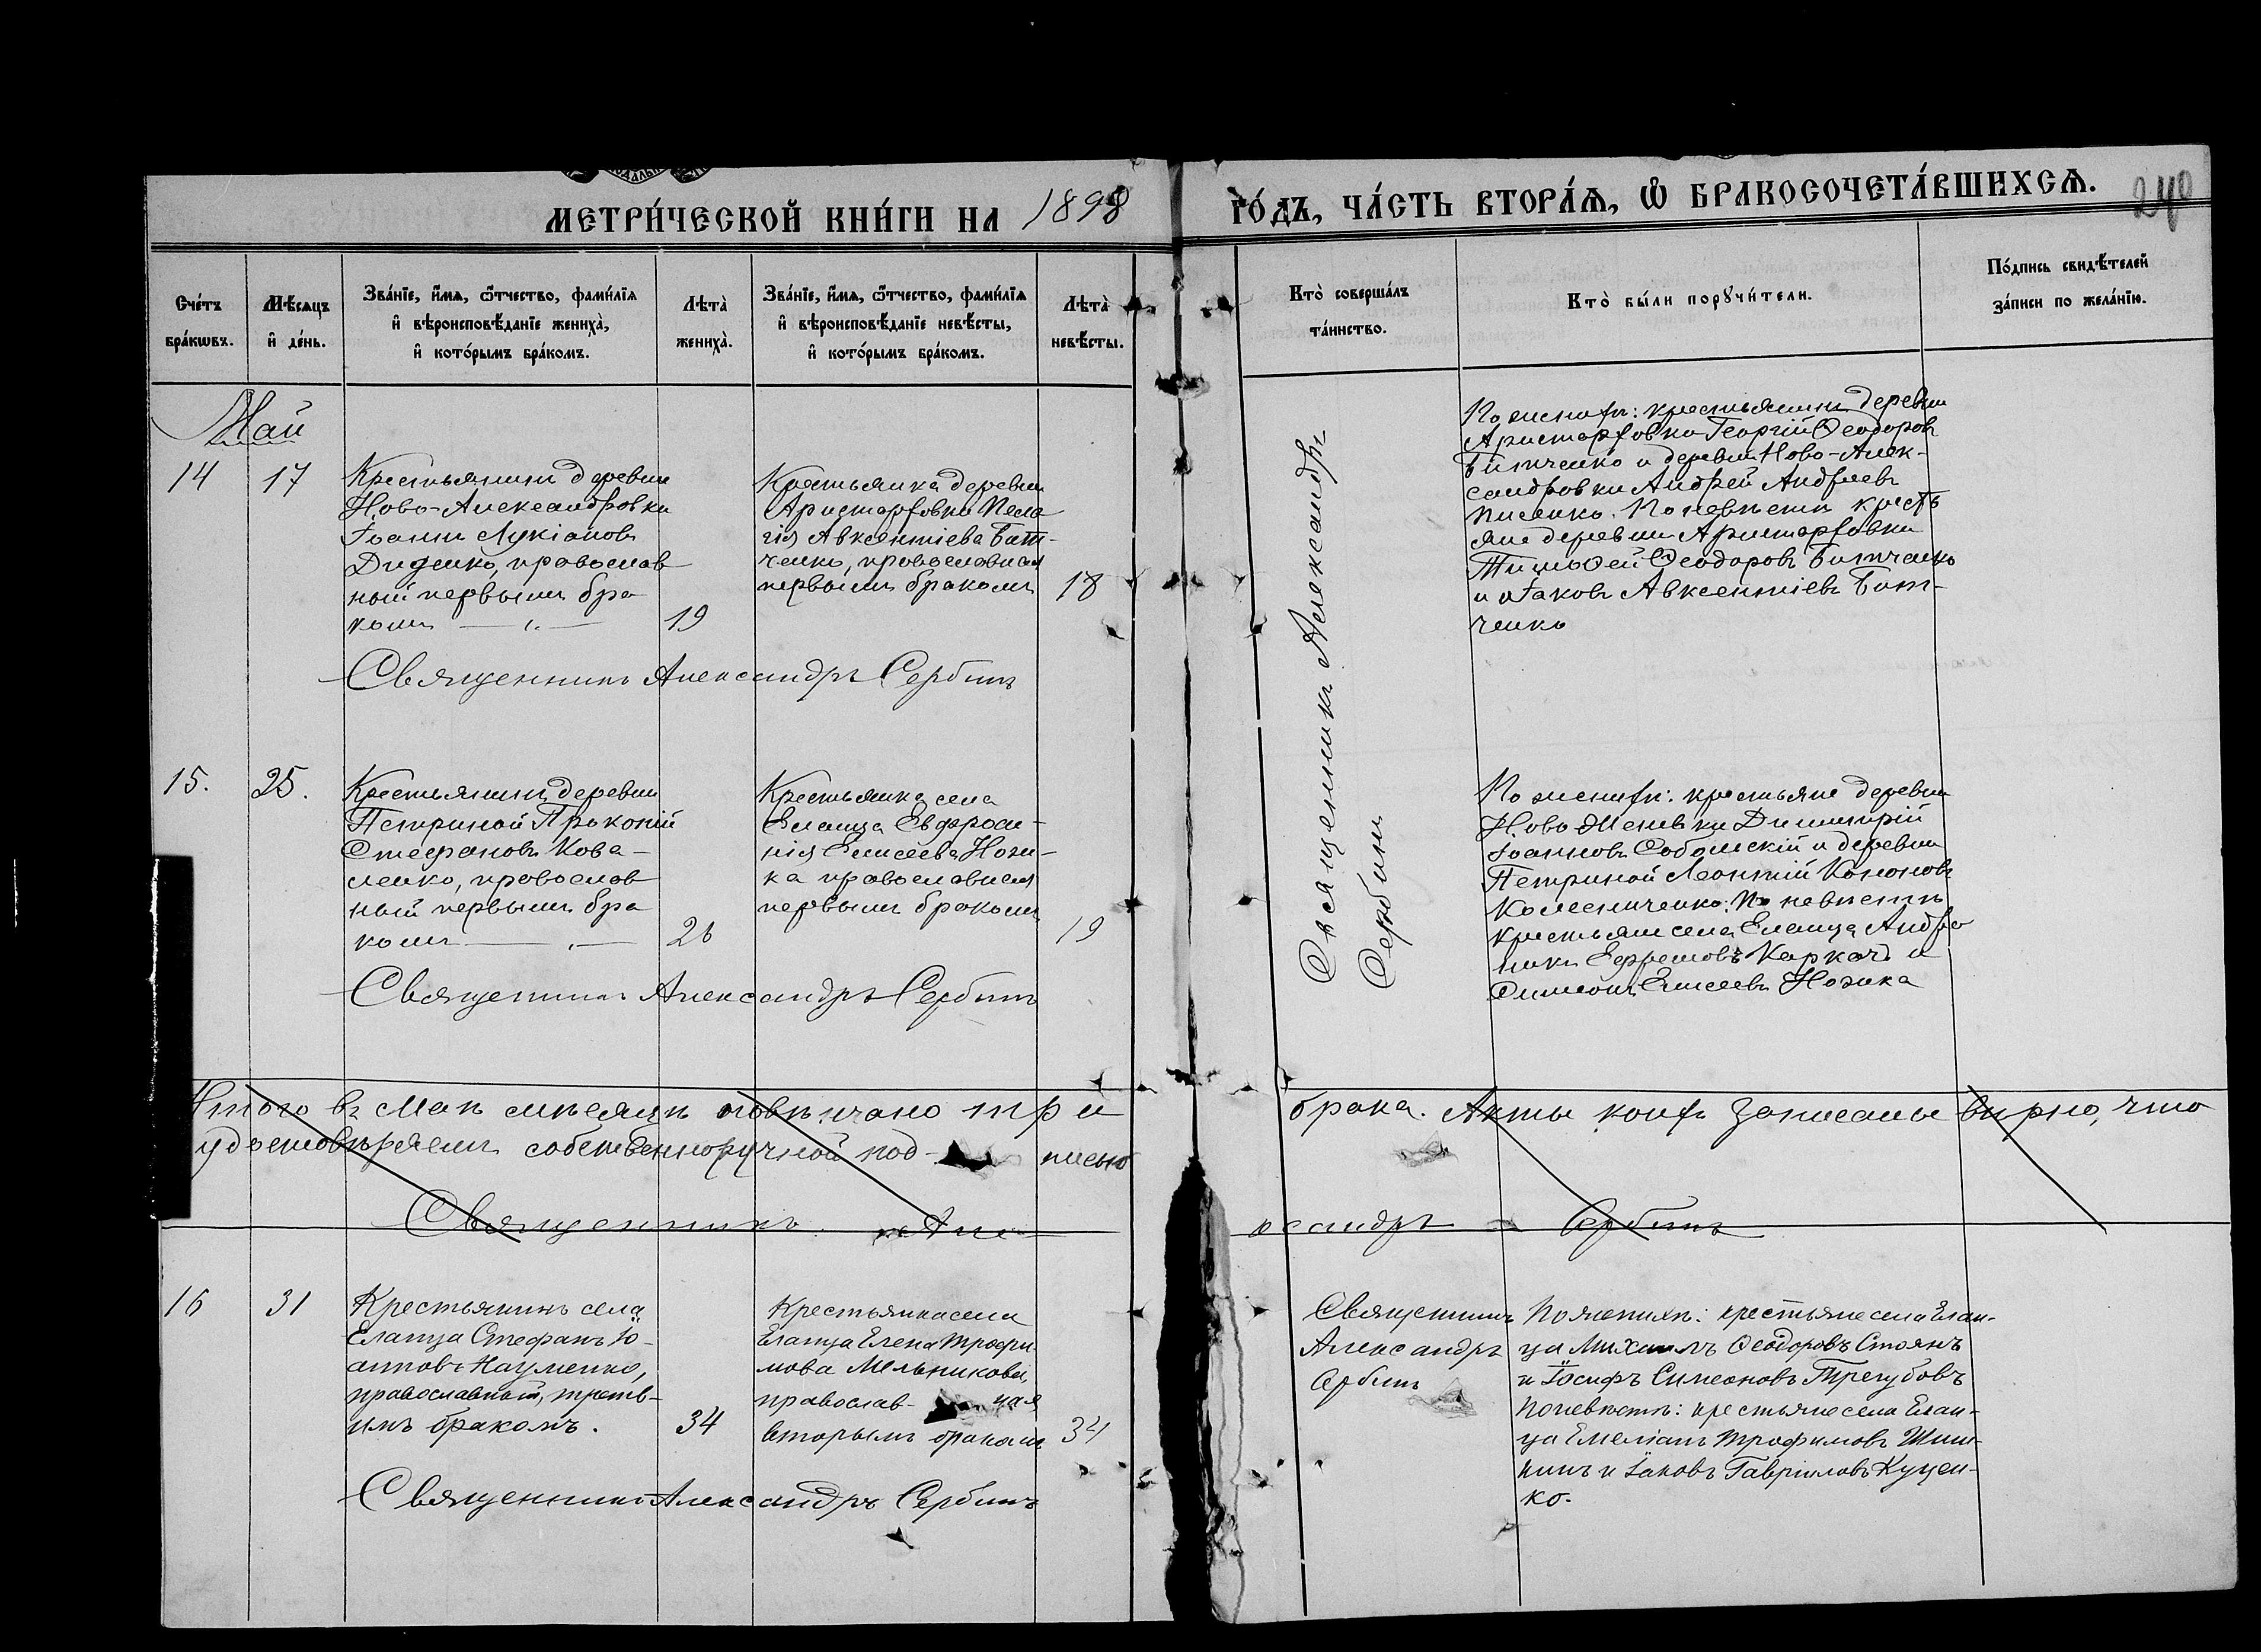 МЕТРИ́ЧЕСКОЙ КНИ́ГИ НА 1898 ГО́ДЪ, ЧА́СТЬ ВТОРА́Ѧ, Ѽ БРАКОСОЧЕТА́ВШИХСѦ. 240
Сче́тъ бра́кѡвъ.
Мѣ́сяцъ и҆ де́нь.
Зва́нїе, и҆́мѧ, ѻ҆́тчество, фами́лїѧ
и҆ вѣроисповѣ́данїе жениха̀,
и҆ кото́рымъ бра́комъ.
Лѣта̀
жениха̀.
Зва́нїе, и҆́мѧ, ѻ҆́тчество, фами́лїѧ
и҆ вѣроисповѣ́данїе невѣ́сты,
и҆ кото́рымъ бра́комъ.
Лѣта̀
невѣ́сты.
Кто̀ соверша́лъ
та́инство.
Кто̀ бы́ли порꙋчи́тели.
По́дпись свидѣ́телей
за́писи по жела́нїю.
Май
14
17
Крестьянинъ деревни
Ново-Александровки
Іоаннъ Лукіановъ
Диденко, православ
ный первымъ бра
комъ
19
Крестьянка деревни
Аристарховки Пела
гія Авксентіева Бит-
ченко, православная
первымъ бракомъ
18
Священникъ Александръ Сербинъ
По женихѣ: крестьянинъ деревни
Аристарховки Георгій Ѳеодоровъ
Битченко и деревни Ново-Алек-
сандровки Андрей Андреевъ
Писенко. По невѣстѣ кресть
яне деревни Аристарховки
Тимоѳей Ѳеодоровъ Битченко
и Іаковъ Авксентіевъ Бит-
ченко
Священникъ Александръ
Сербинъ
15.
25.
Крестьянинъ деревни
Петриной Прокопій
Стефановъ Кова-
ленко, православ
ный первымъ бра
комъ
26
Крестьянка села
Еланца Евфроси-
нія Елисеева Ножи-
ка православная
первымъ бракомъ
19
Священникъ Александръ Сербинъ
По женихѣ: крестьяне деревни
Димитрій
Іоанновъ и деревни
Петриной Леонтій Кононовъ
Колесниченко; По невѣстѣ
крестьяне села Еланца Андро
никъ Ефремовъ Каркачъ и
Симеонъ Елисеевъ Ножика
Итого въ Маѣ мѣсяцѣ повѣнчано три брака. Акты коихъ записаны вѣрно, что
удостовѣряемъ собственноручной под-писью
Священникъ Александръ Сербинъ
16
31
Крестьянинъ села
Еланца Стефанъ Іо-
анновъ Науменко,
православный, треть-
имъ бракомъ.
34
Крестьянка села
Еланца Елена Трофи
мова Мельникова,
православ-ная
вторымъ бракомъ
34
Священникъ Александръ Сербинъ
Священникъ
Александръ
Сербинъ
По женихѣ: крестьяне села Елан-
ца Михаилъ Ѳеодоровъ Стоянъ
и Іосифъ Симеоновъ Трегубовъ
По невѣстѣ: крестьяне села Елан-
ца Емеліанъ Трофимовъ Шиш-
кинъ и Іаковъ Гавриловъ Куцен-
ко.